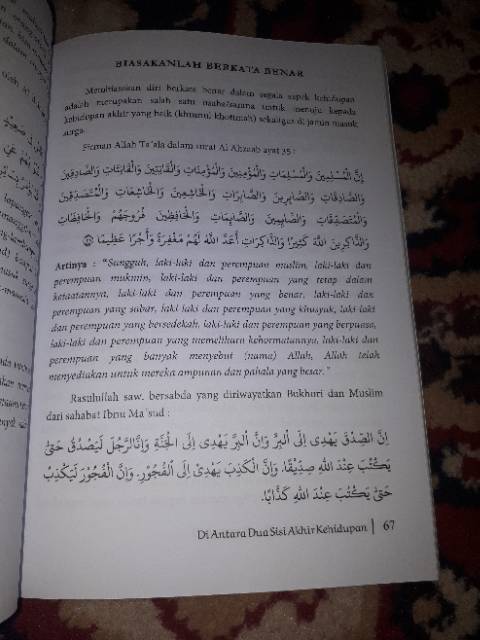 BIASAKANLAH BERKATA BENAR
Membiasakan diri berkata benar dalam segala aspek kehidupan
adalah merupakan salah satu usaha/sarana untuk menuju kepada
kehidupan akhir yang baik (khusnul khotimah) sekaligus di jamin masuk
surga.
Firman Allah Ta'ala dalam surat Al Ahzaab ayat 35 :
إِنَّ الْمُسْلِمِينَ وَالْمُسْلِمَاتِ وَالْمُؤْمِنِينَ وَالْمُؤْمِنَاتِ وَالْقَانِتِينَ وَالْقَانِتَاتِ وَالصَّادِقِينَ
وَالصَّادِقَاتِ وَالصَّابِرِينَ وَالصَّابِرَاتِ وَالْخَاشِعِينَ وَالْخَاشِعَاتِ وَالْمُتَصَدِّقِينَ
وَالْمُتَصَدِّقَاتِ وَالصَّائِمِينَ وَالصَّائِمَاتِ وَالْحَافِظِينَ فُرُوجَهُمْ وَالْحَافِظَاتِ
وَالذَّاكِرِينَ اللَّهَ كَثِيرًا وَالذَّاكِرَاتِ أَعَدَّ اللَّهُ لَهُمْ مَغْفِرَةً وَأَجْرًا عَظِيمًا ﴿٣٥﴾
Artinya : "Sungguh, laki-laki dan perempuan muslim, laki-laki dan
perempuan mukmin, laki-laki dan perempuan yang tetap dalam
ketaatannya, laki-laki dan perempuan yang benar, laki-laki dan
perempuan yang sabar, laki laki dan perempuan yang khusyuk, laki-laki
dan perempuan yang bersedekah, laki-laki dan perempuan yang berpuasa,
laki-laki dan perempuan yang memelihara kehormatannya, laki-laki dan
perempuan yang banyak menyebut (nama) Allah, Allah telah
menyediakan untuk mereka ampunan dan pahala yang besar."
Rasulullah saw. bersabda yang diriwayatkan Bukhori dan Muslim
dari sahabat Ibnu Ma'sud :
إِنَّ الصِّدْقَ يَهْدِى إِلَى الْبِرِّ وَإِنَّ الْبِرَّ يَهْدِى إِلَى الْجَنَّةِ وَإِنَّالرَّجُلَ لَيَصْدُقُ حَتَّى
يَكْتُبَ عِنْدَ اللَّهِ صِدِّيْقًا. وَإِنَّ الْكَذِبَ يَهْدِىْ إِلَى الْفُجُوْرِ. وَإِنَّ الْفُجُوْرَ لَيَكْذِبُ
حَتَّى يَكْتُبَ عِنْدَ اللَّهِ كَذَّابًا.
Di Antara Dua Sisi Akhir Kehidupan | 67